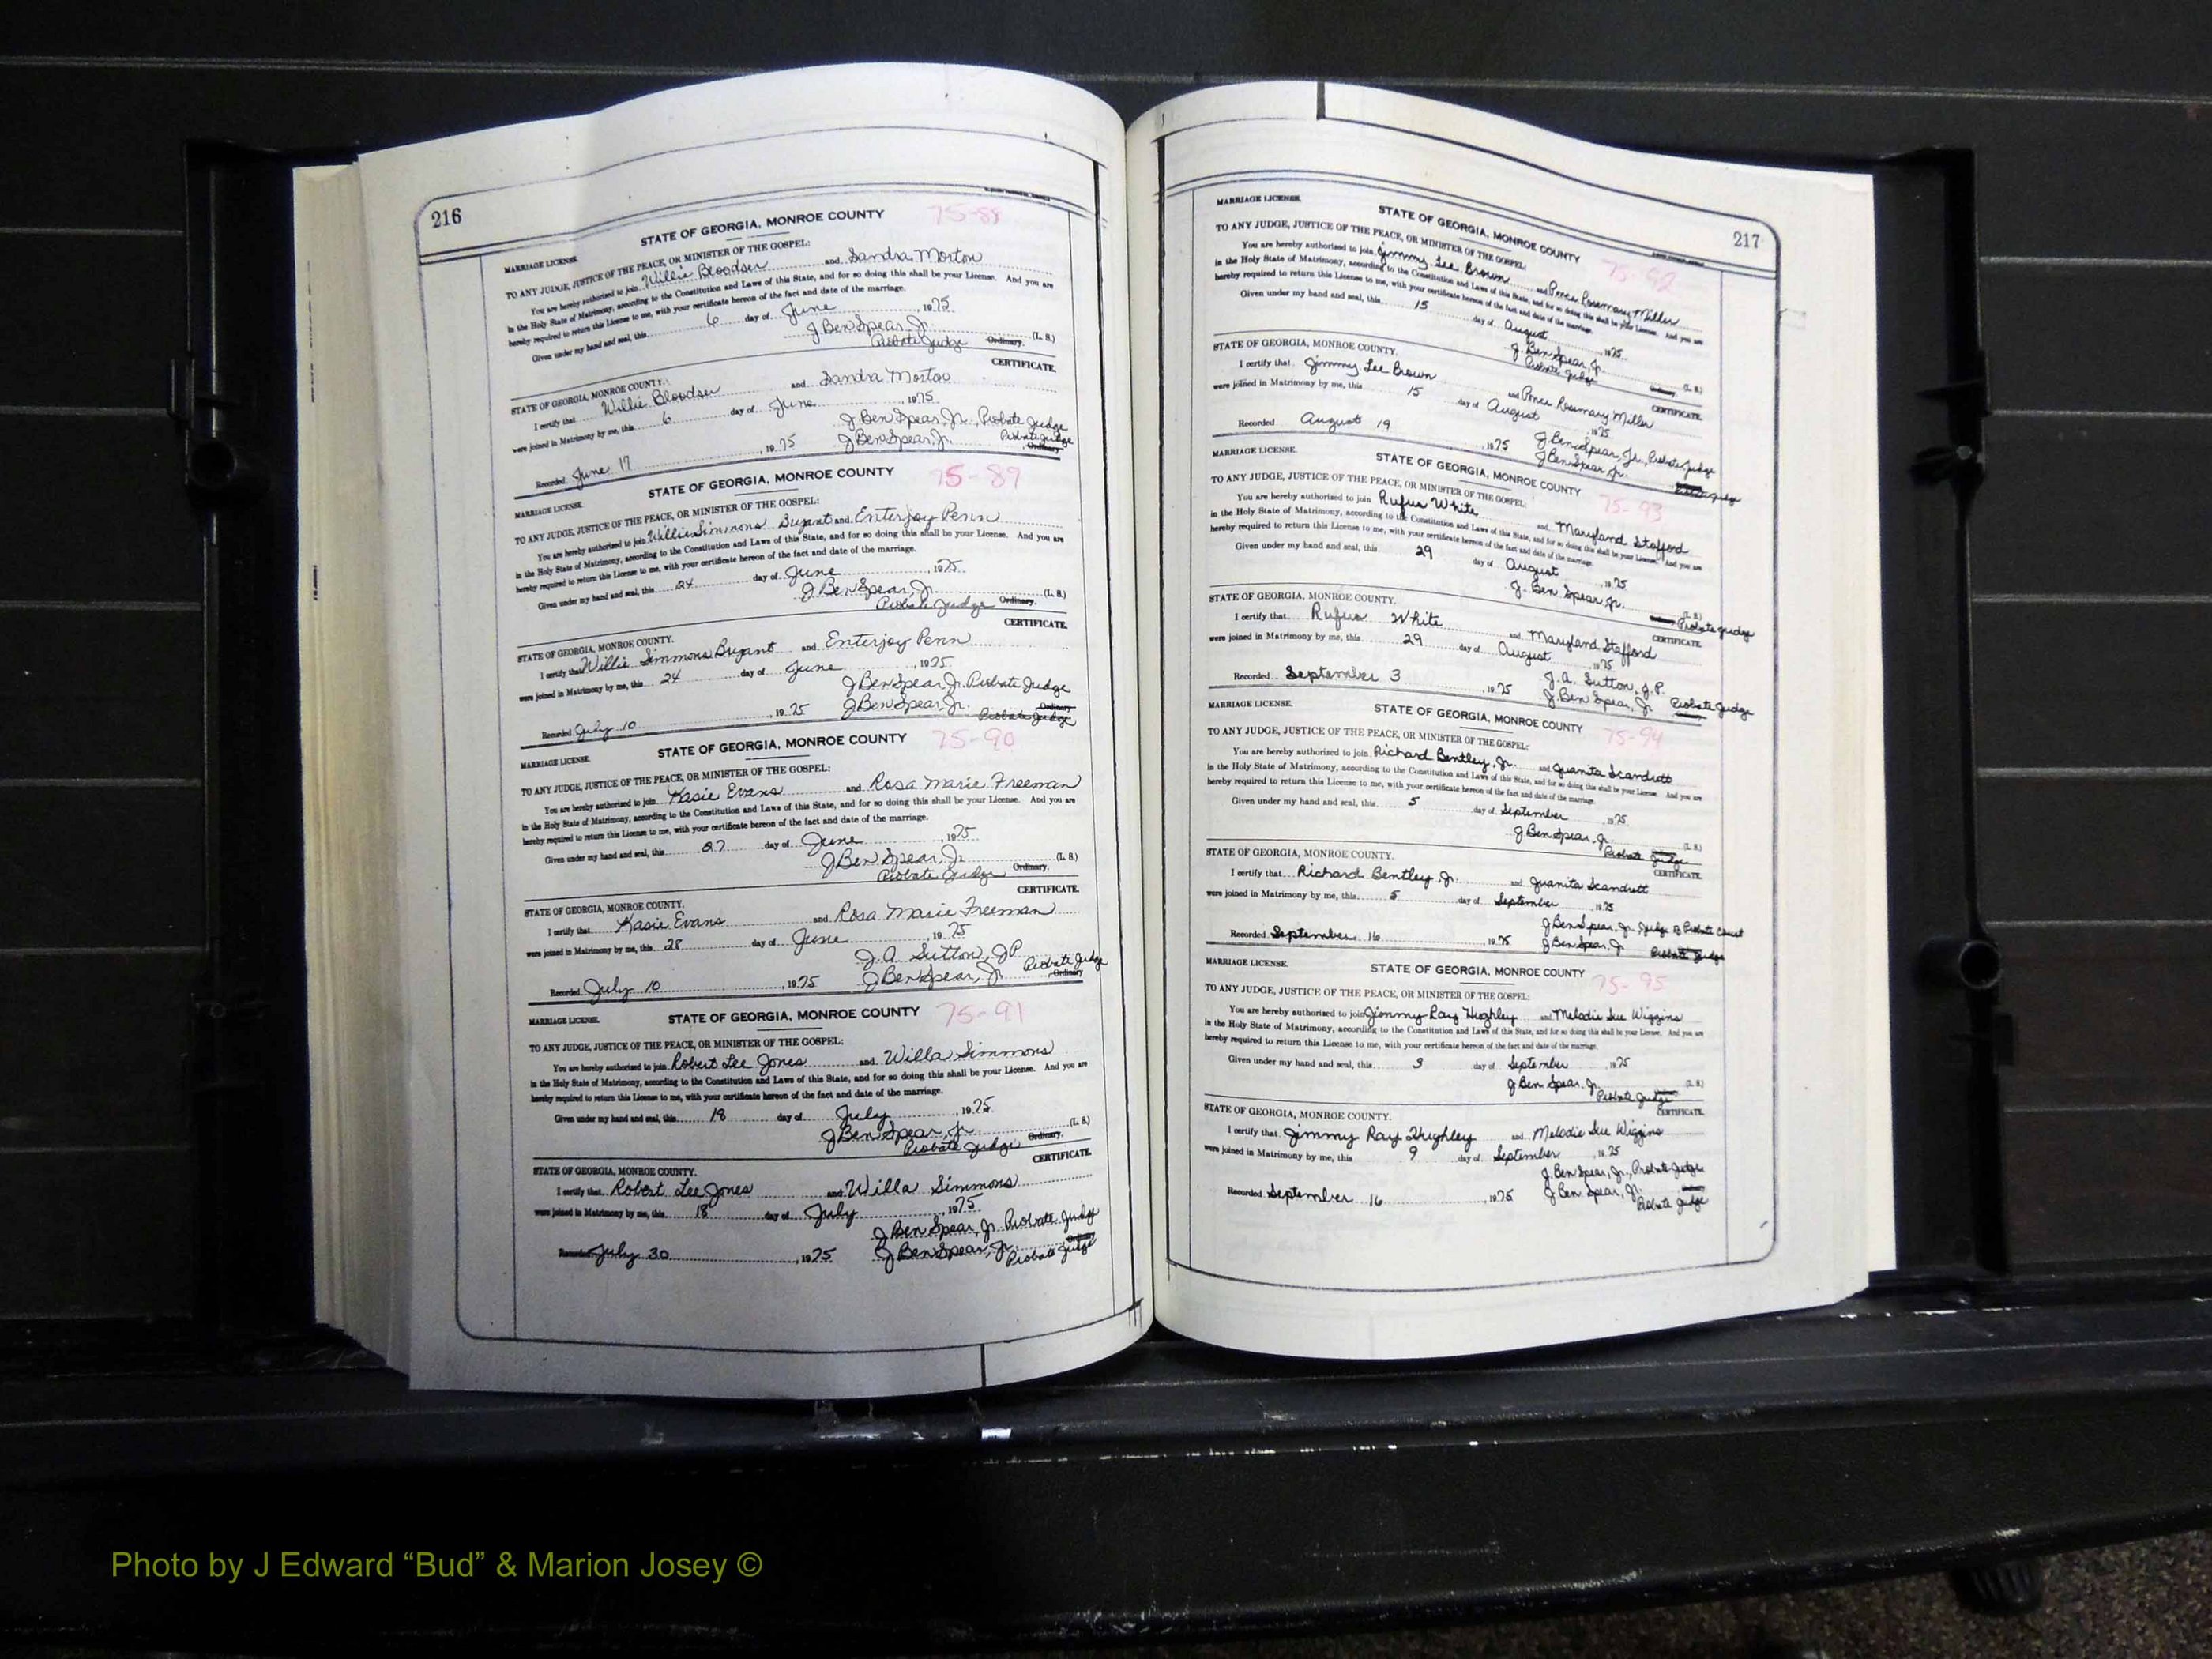 216
STATE OF GEORGIA, MONROE COUNTY 75-88
MARRIAGE LICENSE.
TO ANY JUDGE, JUSTICE OF THE PEACE, OR MINISTER OF THE GOSPEL:
You are hereby authorized to join Willie Bloodser and Sandra Morton
in the Holy State of Matrimony, according to the Constitution and Laws of this State, and for so doing this shall be your License. And you are
hereby required to return this License to me, with your certificate hereon of the fact and date of the marriage.
Given under my hand and seal, this 6 day of June, 1975
J Ben Spear, Jr. (L. S.)
Probate Judge Ordinary.
CERTIFICATE.
STATE OF GEORGIA, MONROE COUNTY.
I certify that Willie Bloodser and Sandra Morton
were joined in Matrimony by me, this 6 day of June, 1975
J Ben Spear, Jr., Probate Judge
Recorded June 17, 1975 J Ben Spear, Jr. Probate Judge Ordinary
STATE OF GEORGIA, MONROE COUNTY 75-89
MARRIAGE LICENSE.
TO ANY JUDGE, JUSTICE OF THE PEACE, OR MINISTER OF THE GOSPEL:
You are hereby authorized to join Willie Simmons Bryant and Enterjoy Penn
in the Holy State of Matrimony, according to the Constitution and Laws of this State, and for so doing this shall be your License. And you are
hereby required to return this License to me, with your certificate hereon of the fact and date of the marriage.
Given under my hand and seal, this 24 day of June, 1975
J Ben Spear, Jr. (L. S.)
Probate Judge Ordinary.
CERTIFICATE.
STATE OF GEORGIA, MONROE COUNTY.
I certify that Willie Simmons Bryant and Enterjoy Penn
were joined in Matrimony by me, this 24 day of June, 1975
J Ben Spear, Jr. Probate Judge
Recorded July 10, 1975 J Ben Spear, Jr. Ordinary
Probate Judge
STATE OF GEORGIA, MONROE COUNTY 75-90
MARRIAGE LICENSE.
TO ANY JUDGE, JUSTICE OF THE PEACE, OR MINISTER OF THE GOSPEL:
You are hereby authorized to join Kasie Evans and Rosa Marie Freeman
in the Holy State of Matrimony, according to the Constitution and Laws of this State, and for so doing this shall be your License. And you are
hereby required to return this License to me, with your certificate hereon of the fact and date of the marriage.
Given under my hand and seal, this 27 day of June, 1975
J Ben Spear, Jr. (L. S.)
Probate Judge Ordinary.
CERTIFICATE.
STATE OF GEORGIA, MONROE COUNTY.
I certify that Kasie Evans and Rosa Marie Freeman
were joined in Matrimony by me, this 28 day of June, 1975
J. A Sutton, JP
Recorded July 10, 1975 J Ben Spear, Jr. Probate Judge Ordinary
STATE OF GEORGIA, MONROE COUNTY 75-91
MARRIAGE LICENSE.
TO ANY JUDGE, JUSTICE OF THE PEACE, OR MINISTER OF THE GOSPEL:
You are hereby authorized to join Robert Lee Jones and Willa Simmons
in the Holy State of Matrimony, according to the Constitution and Laws of this State, and for so doing this shall be your License. And you are
hereby required to return this License to me, with your certificate hereon of the fact and date of the marriage.
Given under my hand and seal, this 18 day of July, 1975
J Ben Spear, Jr. (L. S.)
Probate Judge Ordinary.
CERTIFICATE.
STATE OF GEORGIA, MONROE COUNTY.
I certify that Robert Lee Jones and Willa Simmons
were joined in Matrimony by me, this 18 day of July, 1975
J Ben Spear, Jr. Probate Judge
Recorded July 30, 1975 J Ben Spear, Jr. Ordinary
Probate Judge
217
MARRIAGE LICENSE.
STATE OF GEORGIA, MONROE COUNTY 75-92
TO ANY JUDGE, JUSTICE OF THE PEACE, OR MINISTER OF THE GOSPEL:
You are hereby authorized to join Jimmy Lee Brown and Rosemary Miller
in the Holy State of Matrimony, according to the Constitution and Laws of this State, and for so doing this shall be your License. And you are
hereby required to return this License to me, with your certificate hereon of the fact and date of the marriage.
Given under my hand and seal, this 15 day of August, 1975
J. Ben Spear, Jr. (L. S.)
Probate Judge Ordinary.
STATE OF GEORGIA, MONROE COUNTY. CERTIFICATE.
I certify that Jimmy Lee Brown and Rosemary Miller
were joined in Matrimony by me, this 15 day of August, 1975
J. Ben Spear, Jr., Probate Judge
Recorded August 19, 1975 J Ben Spear, Jr.
Probate Judge
MARRIAGE LICENSE.
STATE OF GEORGIA, MONROE COUNTY 75-93
TO ANY JUDGE, JUSTICE OF THE PEACE, OR MINISTER OF THE GOSPEL:
You are hereby authorized to join Rufus White and Maryland Stafford
in the Holy State of Matrimony, according to the Constitution and Laws of this State, and for so doing this shall be your License. And you are
hereby required to return this License to me, with your certificate hereon of the fact and date of the marriage.
Given under my hand and seal, this 29 day of August, 1975
J. Ben Spear, Jr. (L. S.)
Probate Judge
STATE OF GEORGIA, MONROE COUNTY. CERTIFICATE.
I certify that Rufus White and Maryland Stafford
were joined in Matrimony by me, this 29 day of August, 1975
J. A. Sutton, J.P.
Recorded September 3, 1975 J. Ben Spear, Jr Probate Judge
MARRIAGE LICENSE.
STATE OF GEORGIA, MONROE COUNTY 75-94
TO ANY JUDGE, JUSTICE OF THE PEACE, OR MINISTER OF THE GOSPEL:
You are hereby authorized to join Richard Bentley, Jr. and Juanita Scandrett
in the Holy State of Matrimony, according to the Constitution and Laws of this State, and for so doing this shall be your License. And you are
hereby required to return this License to me, with your certificate hereon of the fact and date of the marriage.
Given under my hand and seal, this 5 day of September, 1975
J Ben Spear, Jr. (L. S.)
Probate Judge
STATE OF GEORGIA, MONROE COUNTY. CERTIFICATE.
I certify that Richard Bentley, Jr. and Juanita Scandrett
were joined in Matrimony by me, this 5 day of September, 1975
J Ben Spear, Jr. Judge of Probate Court
Recorded September 16, 1975 J Ben Spear, Jr
Probate Judge
MARRIAGE LICENSE.
STATE OF GEORGIA, MONROE COUNTY 75-95
TO ANY JUDGE, JUSTICE OF THE PEACE, OR MINISTER OF THE GOSPEL:
You are hereby authorized to join Jimmy Ray Hughley and Melodie Sue Wiggins
in the Holy State of Matrimony, according to the Constitution and Laws of this State, and for so doing this shall be your License. And you are
hereby required to return this License to me, with your certificate hereon of the fact and date of the marriage.
Given under my hand and seal, this 3 day of September, 1975
J Ben Spear, Jr. (L. S.)
Probate Judge
STATE OF GEORGIA, MONROE COUNTY. CERTIFICATE.
I certify that Jimmy Ray Hughley and Melodie Sue Wiggins
were joined in Matrimony by me, this 9 day of September, 1975
J. Ben Spear, Jr., Probate Judge
Recorded September 16, 1975 J Ben Spear, Jr.
Probate Judge
Photo by J Edward “Bud” & Marion Josey ©